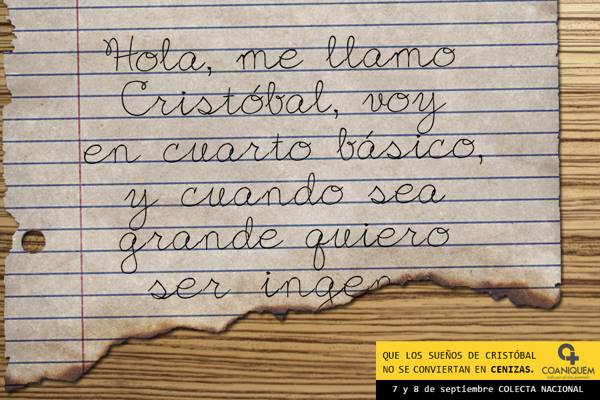 Hola, me llamo
Cristóbal, voy
en cuarto básico,
y cuando sea
grande quiero
ser ingen
QUE LOS SUEÑOS DE CRISTÓBAL
NO SE CONVIERTAN EN CENIZAS.
COANIQUEM
7 y 8 de septiembre COLECTA NACIONAL